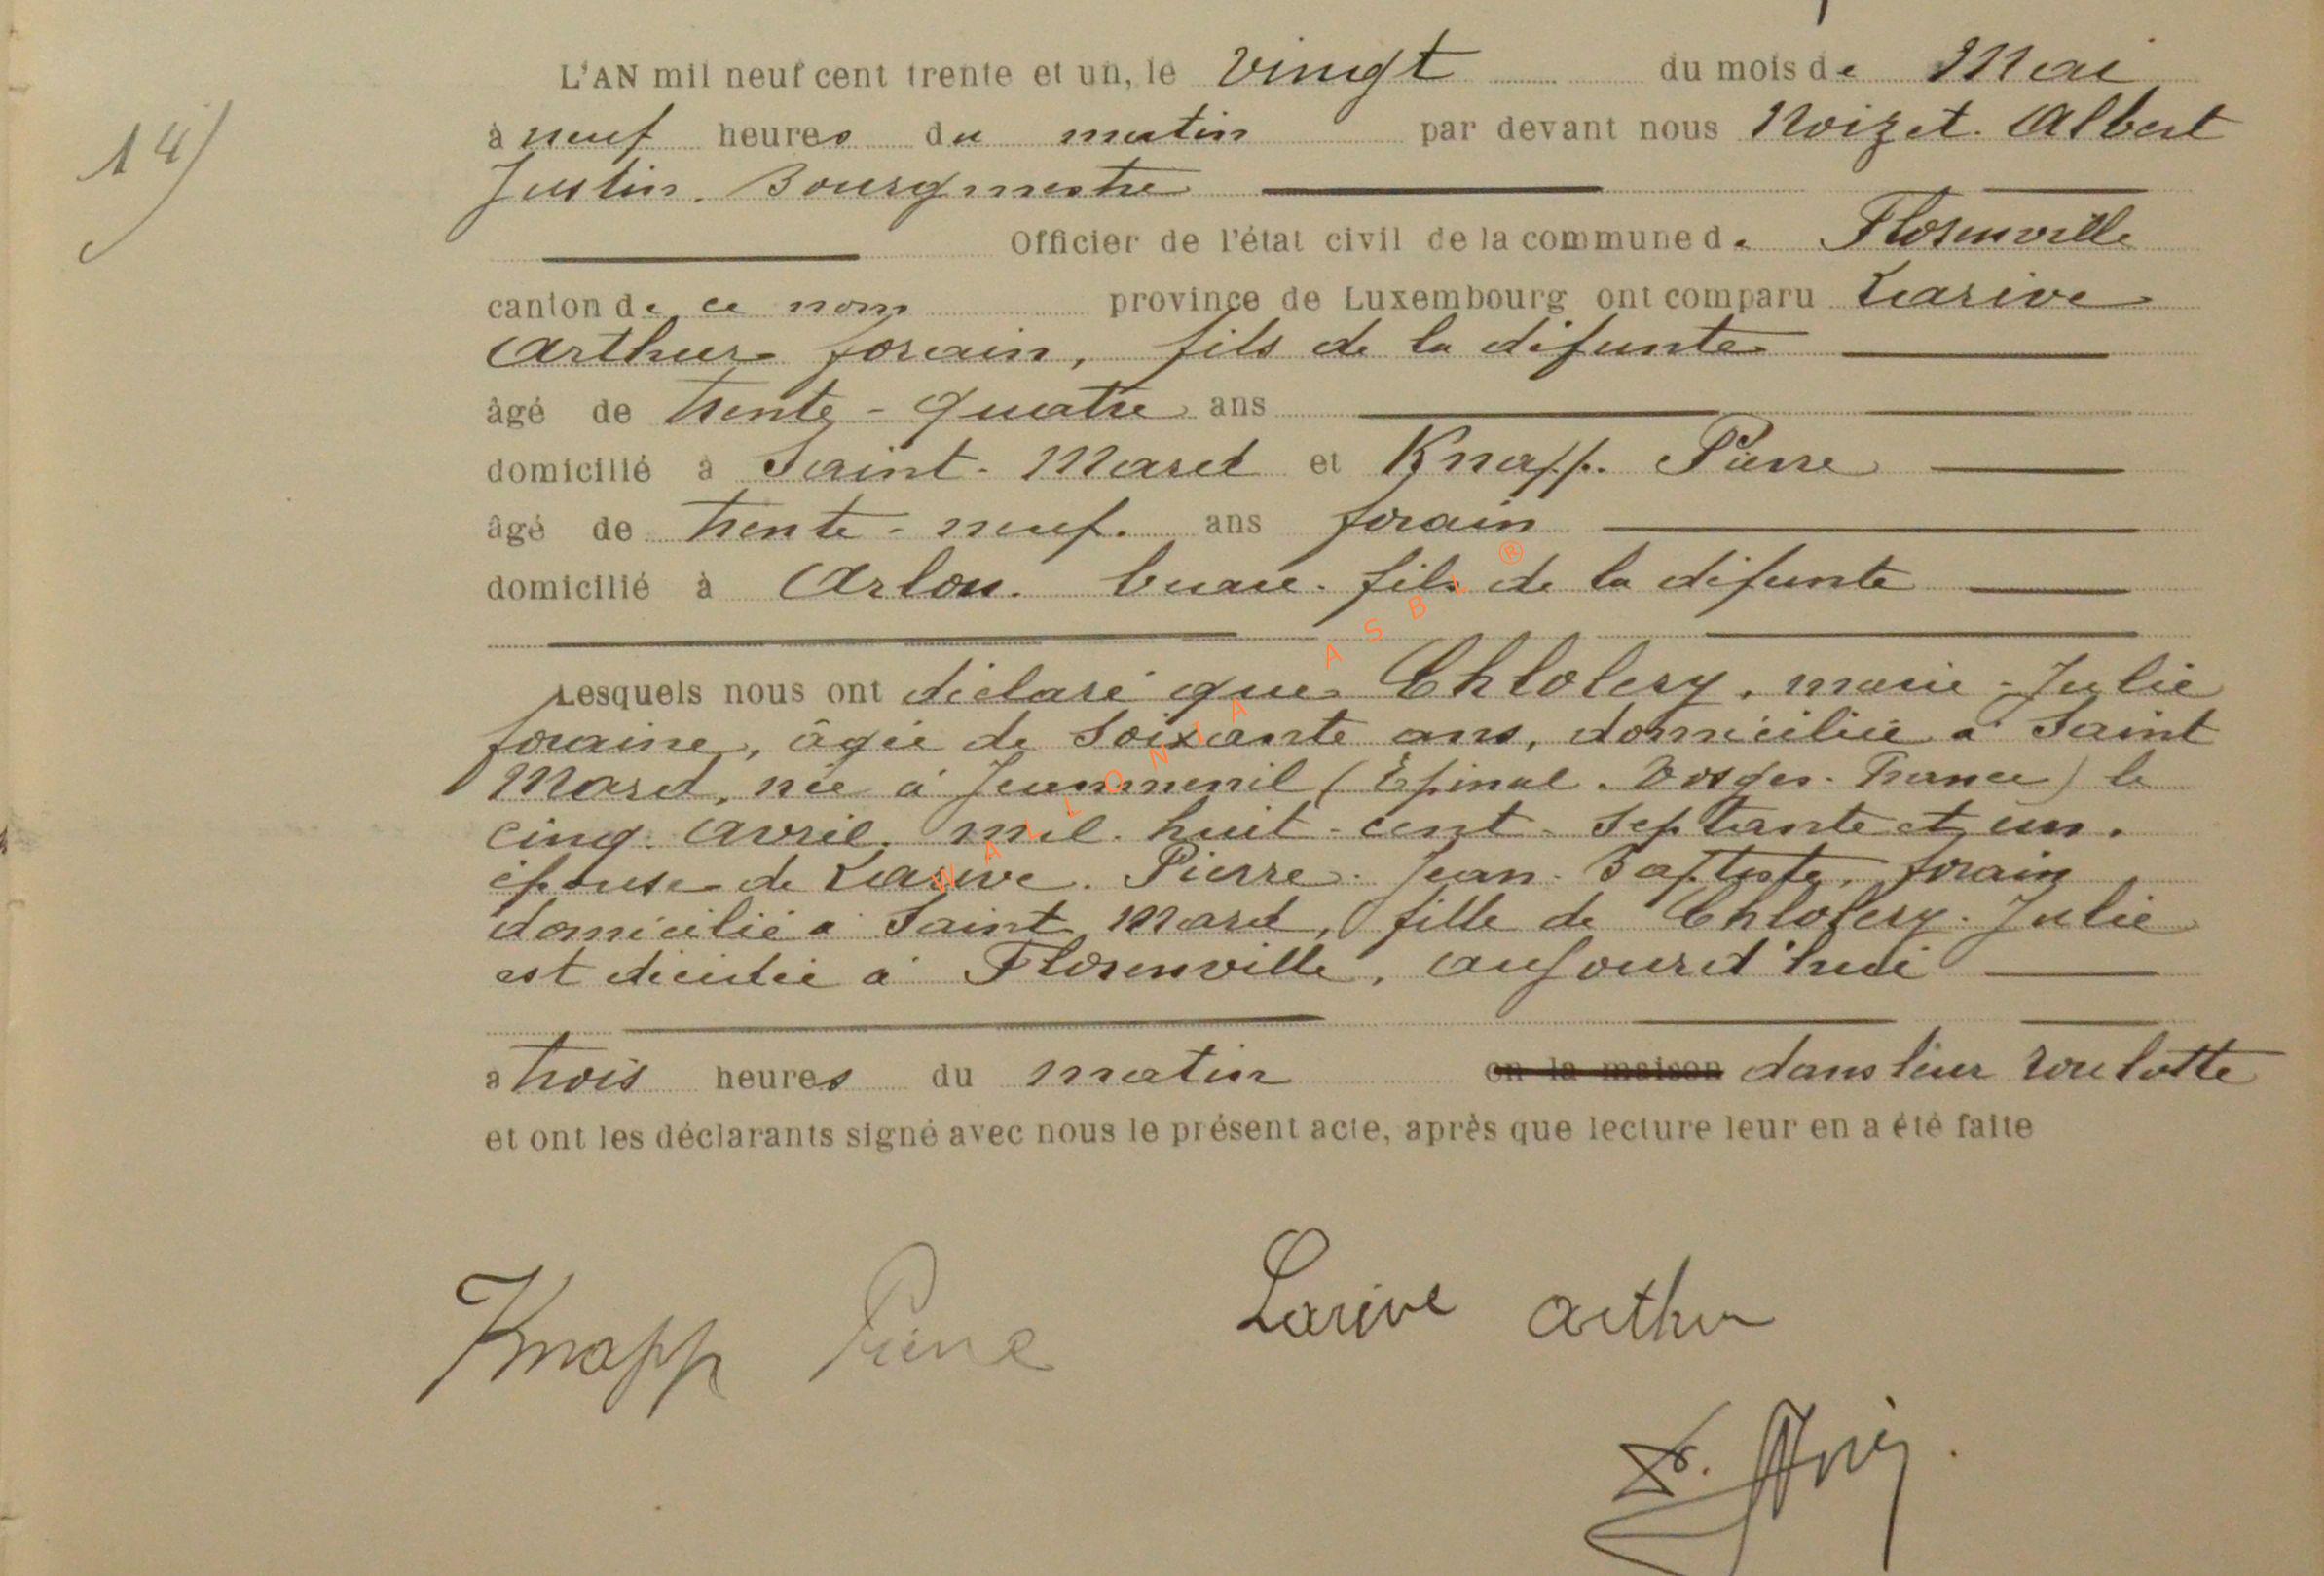 L'AN mil neuf cent trente et un, le vingt du mois de Mai
14)
à neuf heures du matin par devant nous Noizet. Albert
Justin. Bourgmestre
Officier de l'état civil de la commune de Florenville
canton de ce nom province de Luxembourg ont comparu Larive
Arthur forain, fils de la défunte
âgé de trente-quatre ans
domicilié à Saint-Mard et Knapp. Pierre
âgé de trente-neuf. ans forain
domicilié à Arlon. beau-fils de la défunte
Lesquels nous ont déclaré que Chlolery. marie-Julie
foraine, âgée de soixante ans, domiciliée à Saint
Mard, née à Jeanmenil (Epinal. Vosges. France) le
cinq. avril. mil. huit-cent-septante et un.
épouse de Larive. Pierre. Jean-Baptiste, forain
domicilié à Saint Mard, fille de Chlolery. Julie
est décédée à Florenville, aujourd'hui
à trois heures du matin en la maison dans leur roulotte
et ont les déclarants signé avec nous le présent acte, après que lecture leur en a été faite
Knapp Pierre Larive arthur
WALLONIA ASBL ®